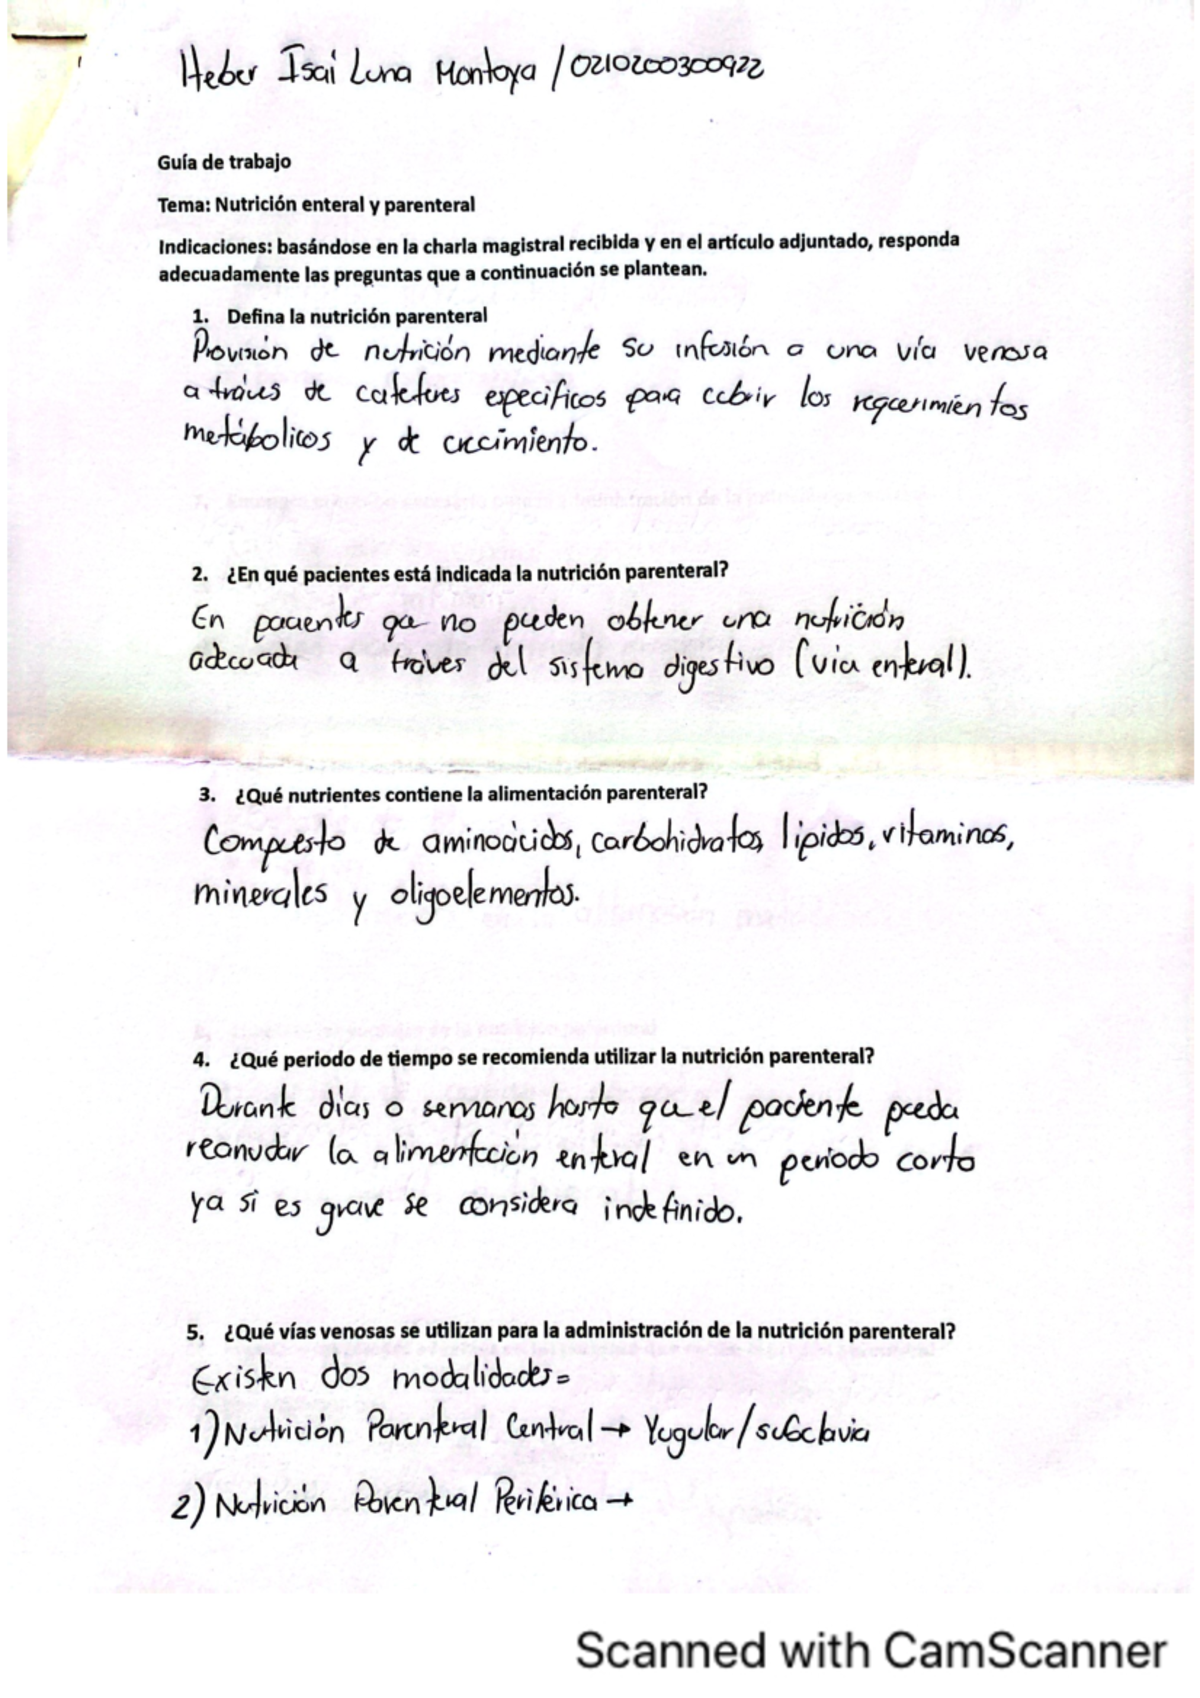 Heber Isai Luna Montoya / 0210200300922
Guía de trabajo
Tema: Nutrición enteral y parenteral
Indicaciones: basándose en la charla magistral recibida y en el artículo adjuntado, responda
adecuadamente las preguntas que a continuación se plantean.
1. Defina la nutrición parenteral
Provisión de nutrición mediante su infusión a una vía venosa
a tráves de cateteres especificos para cubrir los requerimientos
metábolicos y de crecimiento.
2. ¿En qué pacientes está indicada la nutrición parenteral?
En pacientes que no pueden obtener una nutrición
adecuada a tráves del sistema digestivo (via enteral).
3. ¿Qué nutrientes contiene la alimentación parenteral?
Compuesto de aminoácidos, carbohidratos, lipidos, vitaminas,
minerales y oligoelementos.
4. ¿Qué periodo de tiempo se recomienda utilizar la nutrición parenteral?
Durante días o semanas hasta que el paciente pueda
reanudar la alimentación enteral en un periodo corto
ya si es grave se considera indefinido.
5. ¿Qué vías venosas se utilizan para la administración de la nutrición parenteral?
Existen dos modalidades=
1) Nutrición Parenteral Central → Yugular/subclavia
2) Nutrición Parenteral Periférica →
Scanned with CamScanner